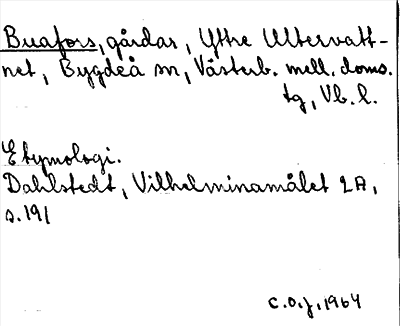 Buafors, gårdar, Yttre Ultervatt-
net, Bygdeå sn, Västerb. mell. doms.
tg, Vb. l.
Etymologi.
Dahlstedt, Vilhelminamålet 2A,
s. 191
C.O.J. 1964